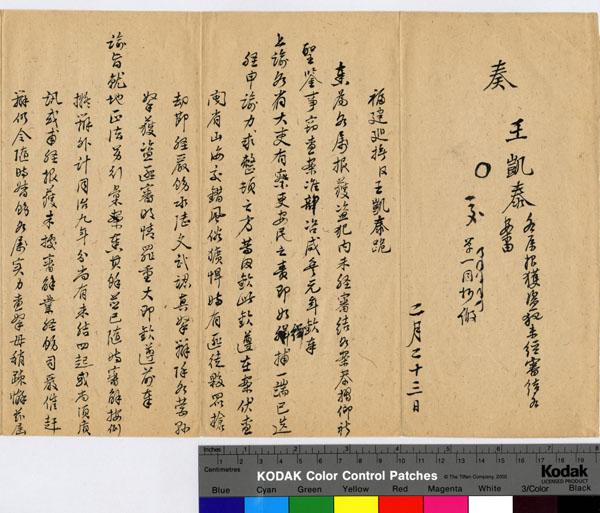 奏
王凱泰
各属報獲盜犯未經審結各
案由
二月二十三日
福建巡撫臣王凱泰跪
奏為各属報獲盜犯內未經審結各案恭摺仰祈
聖鑒事竊查案准部咨咸豐元年欽奉
上諭各省大吏有察吏安民之責即如緝捕一端已迭
經申諭力求整頓之方等因欽此欽遵在案伏查
閩省山海交錯風俗獷悍時有匪徒夥眾搶
劫即經嚴飭水陸文武認真拏辦陸各營縣
拏獲盜匪審明情罪重大即欽遵前奉
諭旨就地正法另行彙案奏其餘並已隨時審解按例
擬辦外計同治九年分尚有未結四起或尚須質
訊或甫經報獲未據審解業經飭司嚴催趕
辦仍令隨時督飭各属實力查拏毋稍疎懈茲屆
Inches
Centimetres
KODAK Color Control Patches
© The Tiffen Company, 2000
Kodak
LICENSED PRODUCT
Blue Cyan Green Yellow Red Magenta White 3/Color Black